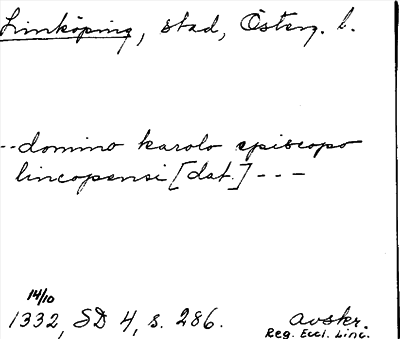 Linköping, stad, Österg. l.
--domino karolo episcopo
lincopensi [dat.] ---
14/10
1332, SD 4, s. 286.
avskr.
Reg. Eccl. Linc.